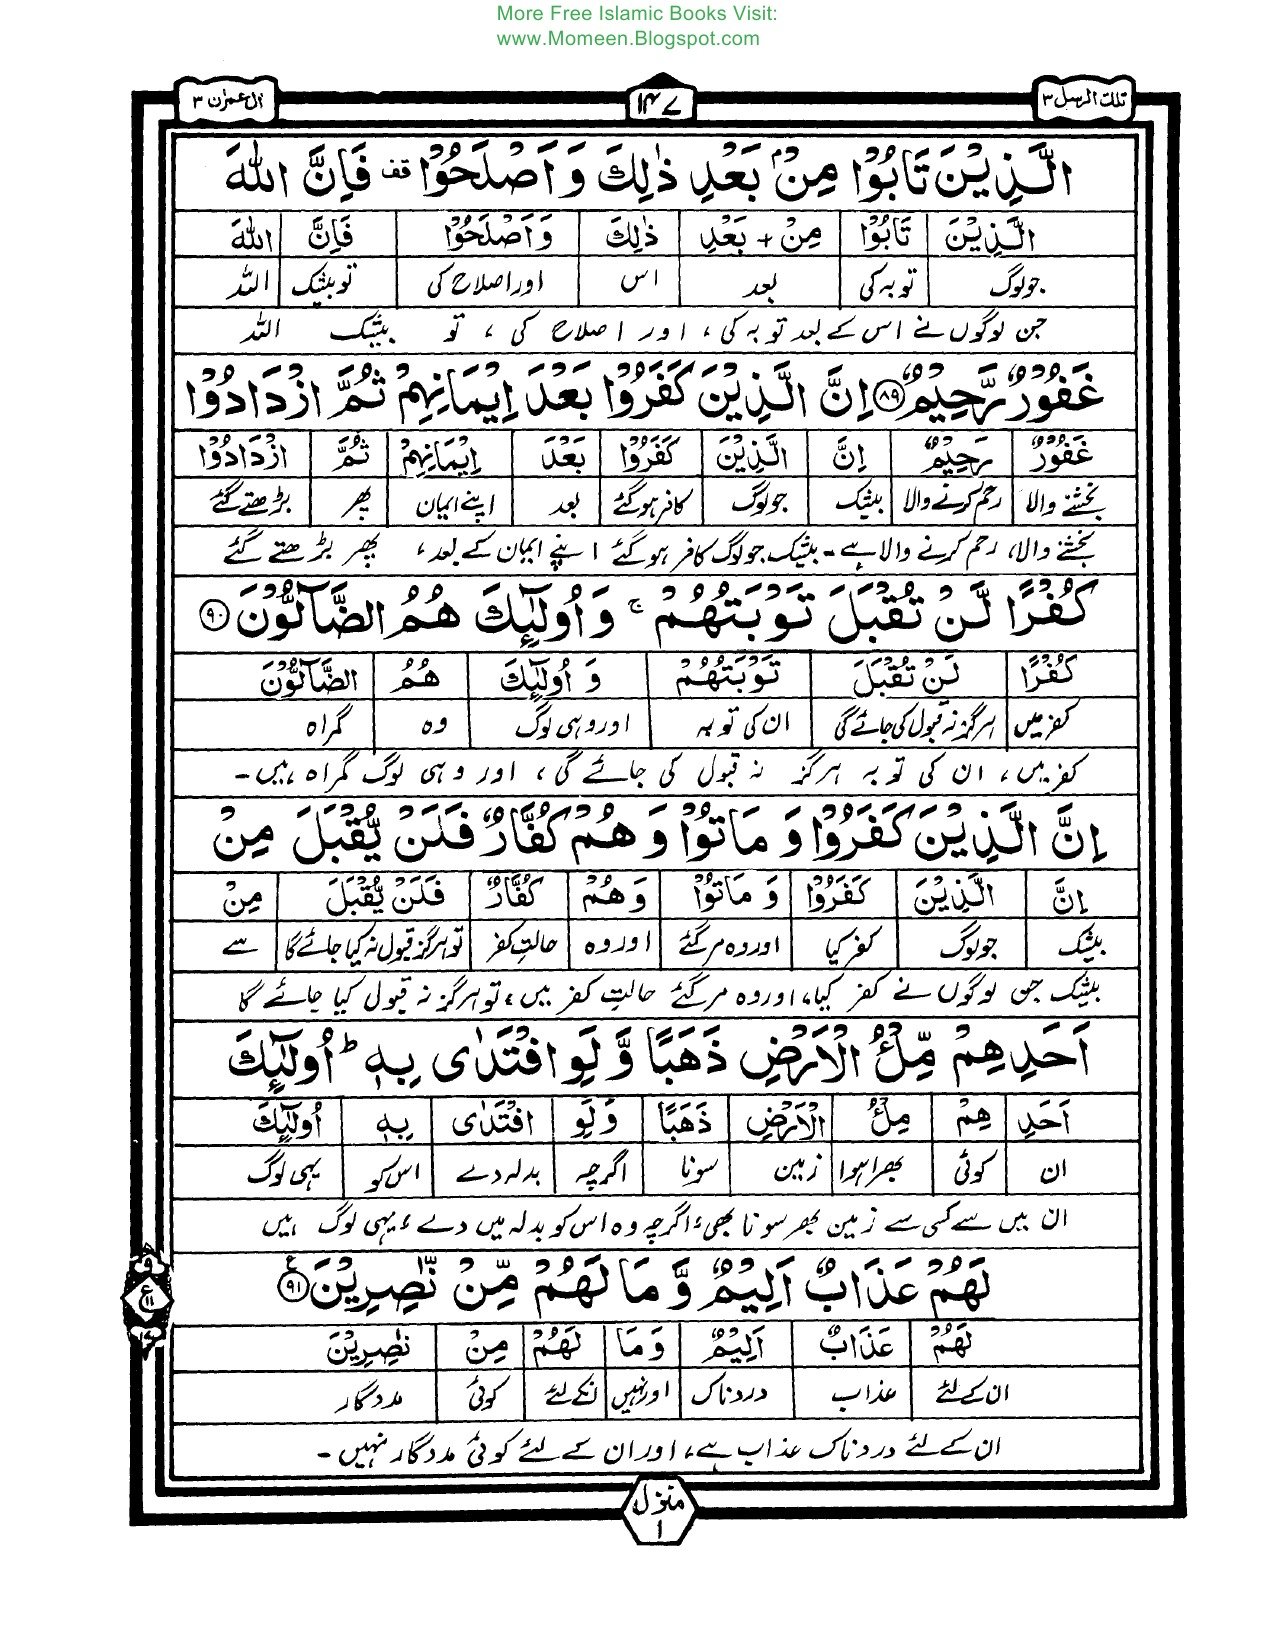 More Free Islamic Books Visit:
www.Momeen.Blogspot.com
تلك الرسل ٣ ۱۴۷ اٰل عمرٰن ٣
الَّذِيْنَ تَابُوْا مِنْۢ بَعْدِ ذٰلِكَ وَاَصْلَحُوْا قف فَاِنَّ اللّٰهَ
الَّذِيْنَ تَابُوْا مِنْ + بَعْدِ ذٰلِكَ وَاَصْلَحُوْا فَاِنَّ اللّٰهَ
جو لوگ توبہ کی بعد اس اور اصلاح کی تو بیشک اللہ
جن لوگوں نے اس کے بعد توبہ کی، اور اصلاح کی، تو بیشک اللہ
غَفُوْرٌ رَّحِيْمٌ ﴿۸۹﴾ اِنَّ الَّذِيْنَ كَفَرُوْا بَعْدَ اِيْمَانِهِمْ ثُمَّ ازْدَادُوْا
غَفُوْرٌ رَحِيْمٌ اِنَّ الَّذِيْنَ كَفَرُوْا بَعْدَ اِيْمَانِهِمْ ثُمَّ ازْدَادُوْا
بخشنے والا رحم کرنے والا بیشک جو لوگ کافر ہوگئے بعد اپنے ایمان پھر بڑھتے گئے
بخشنے والا، رحم کرنے والا ہے - بیشک جو لوگ کافر ہوگئے اپنے ایمان کے بعد، پھر بڑھتے گئے
كُفْرًا لَّنْ تُقْبَلَ تَوْبَتُهُمْ ۚ وَاُولٰٓئِكَ هُمُ الضَّآلُّوْنَ ﴿۹۰﴾
كُفْرًا لَنْ تُقْبَلَ تَوْبَتُهُمْ وَ اُولٰٓئِكَ هُمُ الضَّآلُّوْنَ
کفر میں ہرگز نہ قبول کی جائے گی ان کی توبہ اور وہی لوگ وہ گمراہ
کفر میں، ان کی توبہ ہرگز نہ قبول کی جائے گی، اور وہی لوگ گمراہ ہیں-
اِنَّ الَّذِيْنَ كَفَرُوْا وَ مَاتُوْا وَ هُمْ كُفَّارٌ فَلَنْ يُّقْبَلَ مِنْ
اِنَّ الَّذِيْنَ كَفَرُوْا وَ مَاتُوْا وَ هُمْ كُفَّارٌ فَلَنْ يُّقْبَلَ مِنْ
بیشک جو لوگ کفر کیا اور وہ مرگئے اور وہ حالتِ کفر تو ہرگز قبول نہ کیا جائے گا سے
بیشک جن لوگوں نے کفر کیا، اور وہ مرگئے حالتِ کفر میں، تو ہرگز نہ قبول کیا جائے گا
اَحَدِهِمْ مِّلْءُ الْاَرْضِ ذَهَبًا وَّ لَوِ افْتَدٰى بِهٖ ؕ اُولٰٓئِكَ
اَحَدِ هِمْ مِلْءُ الْاَرْضِ ذَهَبًا وَ لَوِ افْتَدٰى بِهٖ اُولٰٓئِكَ
ان کوئی بھرا ہوا زمین سونا اگرچہ بدلہ دے اس کو یہی لوگ
ان میں سے کسی سے زمین بھر سونا بھی، اگرچہ وہ اس کو بدلہ میں دے، یہی لوگ ہیں
لَهُمْ عَذَابٌ اَلِيْمٌ وَّ مَا لَهُمْ مِّنْ نّٰصِرِيْنَ ﴿۹۱﴾ ع
لَهُمْ عَذَابٌ اَلِيْمٌ وَ مَا لَهُمْ مِنْ نٰصِرِيْنَ
ان کے لئے عذاب دردناک اور نہیں انکے لئے کوئی مددگار
ان کے لئے دردناک عذاب ہے، اور ان کے لئے کوئی مددگار نہیں-
منزل
۱